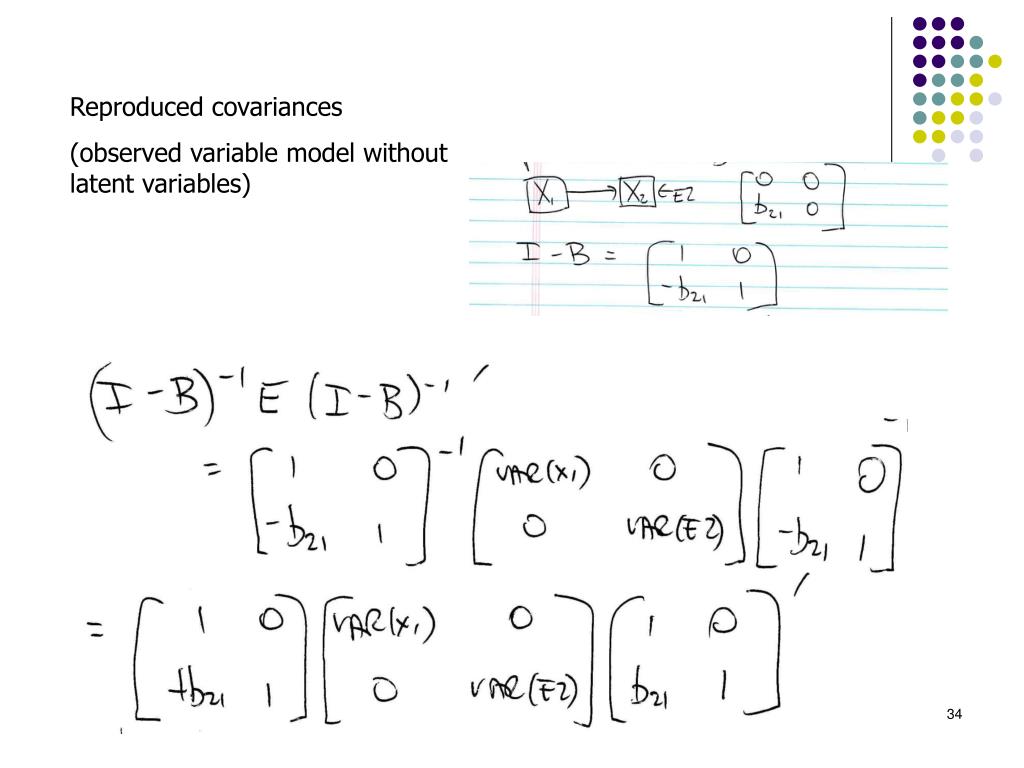 Reproduced covariances
(observed variable model without
latent variables)
X₁ → X₂ ← E2 [0 0
b₂₁ 0]
I - B = [1 0
-b₂₁ 1]
(I - B)⁻¹ E (I - B)⁻¹ ′
= [1 0 ]⁻¹ [VAR(X₁) 0 ] [1 0 ]
[-b₂₁ 1] [0 VAR(E2)] [-b₂₁ 1]
= [1 0 ] [VAR(X₁) 0 ] [1 0 ]′
[+b₂₁ 1] [0 VAR(E2)] [b₂₁ 1]
34